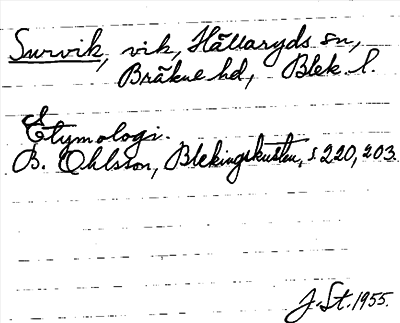 Survik, vik, Hällaryds sn,
Bräkne hd, Blek. l.
Etymologi.
B. Ohlsson, Blekingskusten, s 220, 203.
J. St. 1955.